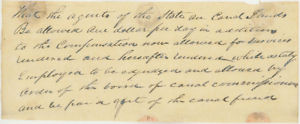 That the agents of the State on Canal Lands
Be allowed one dollar per day in addition
to the Compensation now allowed for Services
rendered and hereafter rendered while actually
Employed to be adjusted and allowed by
order of the board of canal commissioners
and be paid out of the canal fund